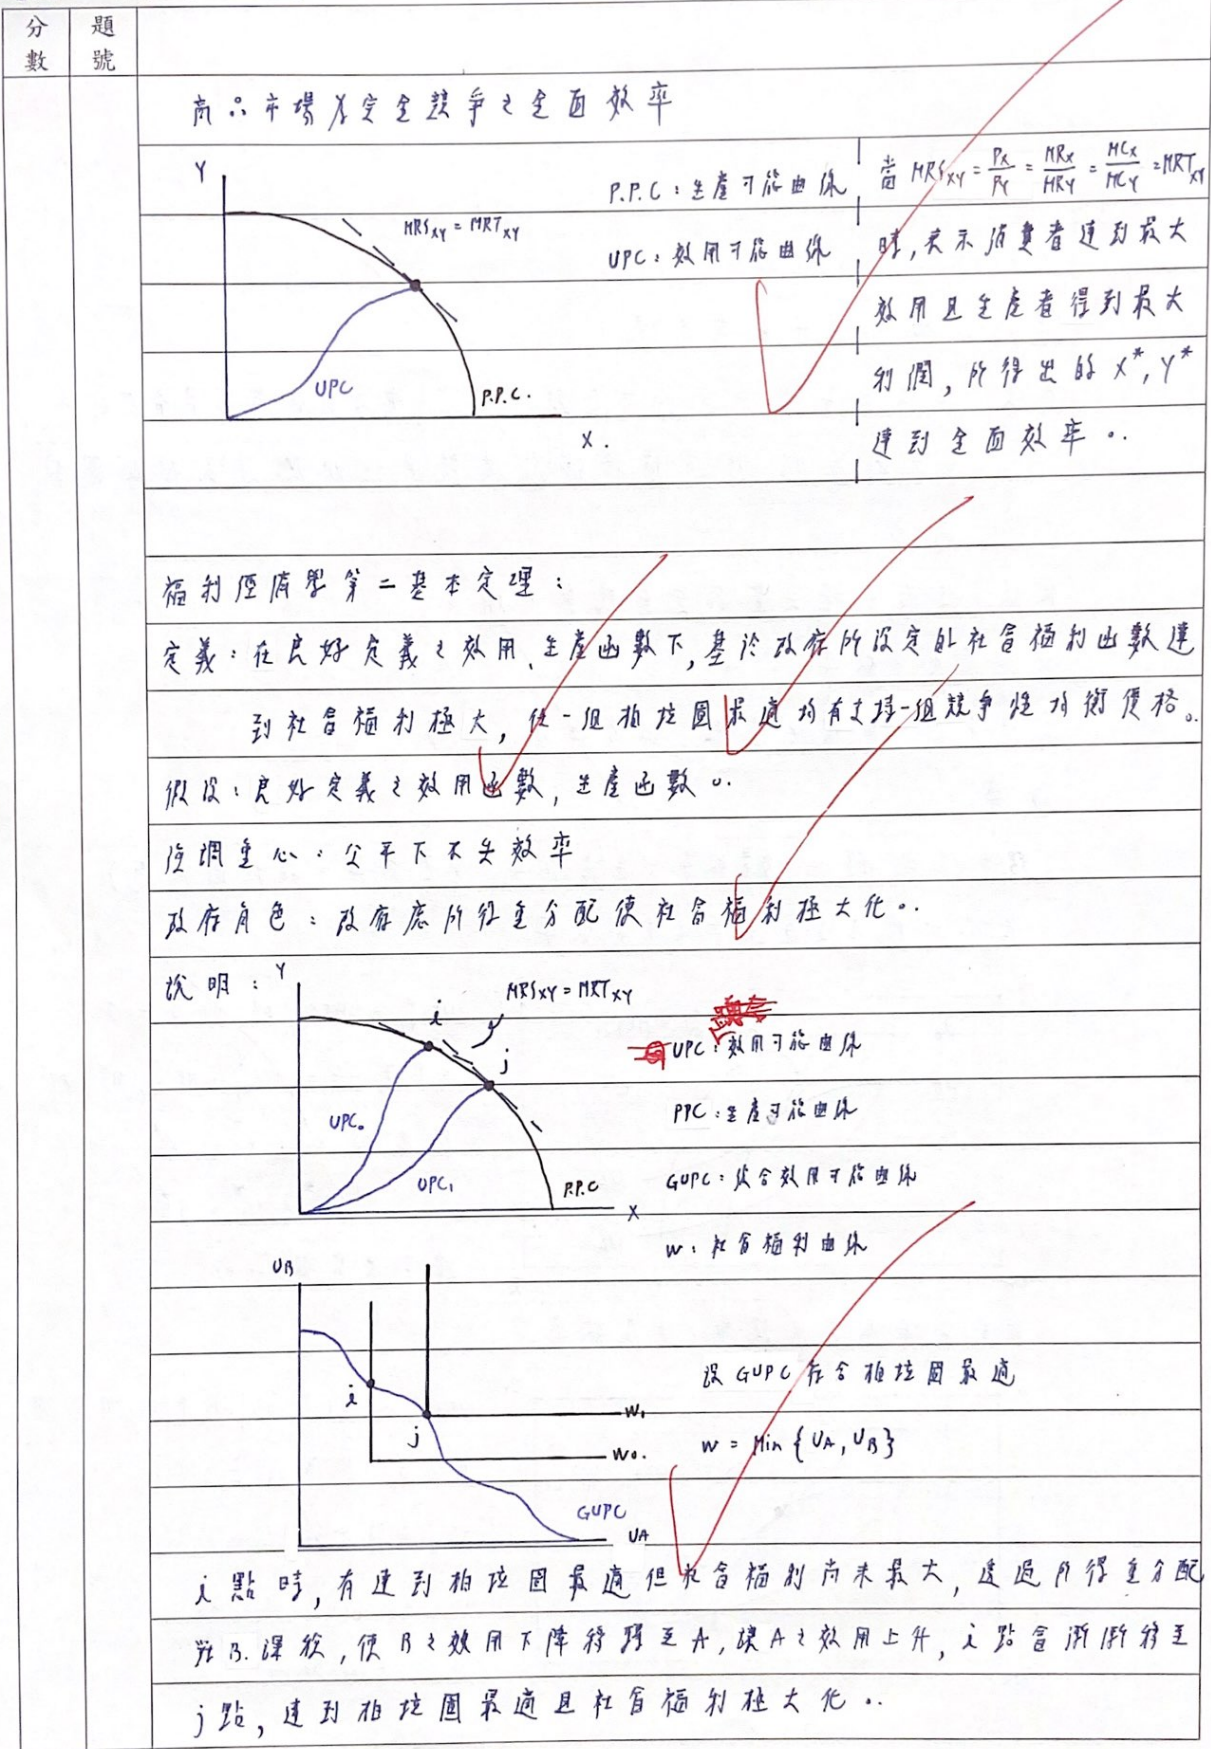 分數
題號
商品市場為完全競爭之全面效率
Y
MRS_XY = MRT_XY
UPC
P.P.C.
X.
P.P.C：生產可能曲線
UPC：效用可能曲線
當 MRS_XY = P_X/P_Y = MR_X/MR_Y = MC_X/MC_Y = MRT_XY
時，表示消費者達到最大
效用且生產者得到最大
利潤，所得出的 X*, Y*
達到全面效率。
福利經濟學第二基本定理：
定義：在良好定義之效用、生產函數下，基於政府所設定的社會福利函數達
到社會福利極大，任一組柏拉圖最適均有支持一組競爭性均衡價格。
假設：良好定義之效用函數，生產函數。
強調重心：公平下不失效率
政府角色：政府應所得重分配使社會福利極大化。
說明：
Y
i
MRS_XY = MRT_XY
j
UPC₀
UPC₁
P.P.C
X
UPC：效用可能曲線
PPC：生產可能曲線
GUPC：綜合效用可能曲線
W：社會福利曲線
U_B
i
j
W₁
W₀.
GUPC
U_A
設 GUPC 符合柏拉圖最適
W = Min {U_A, U_B}
i 點時，有達到柏拉圖最適但社會福利尚未最大，透過所得重分配
對 B 課稅，使 B 之效用下降移轉至 A，讓 A 之效用上升，i 點會漸漸移至
j 點，達到柏拉圖最適且社會福利極大化。